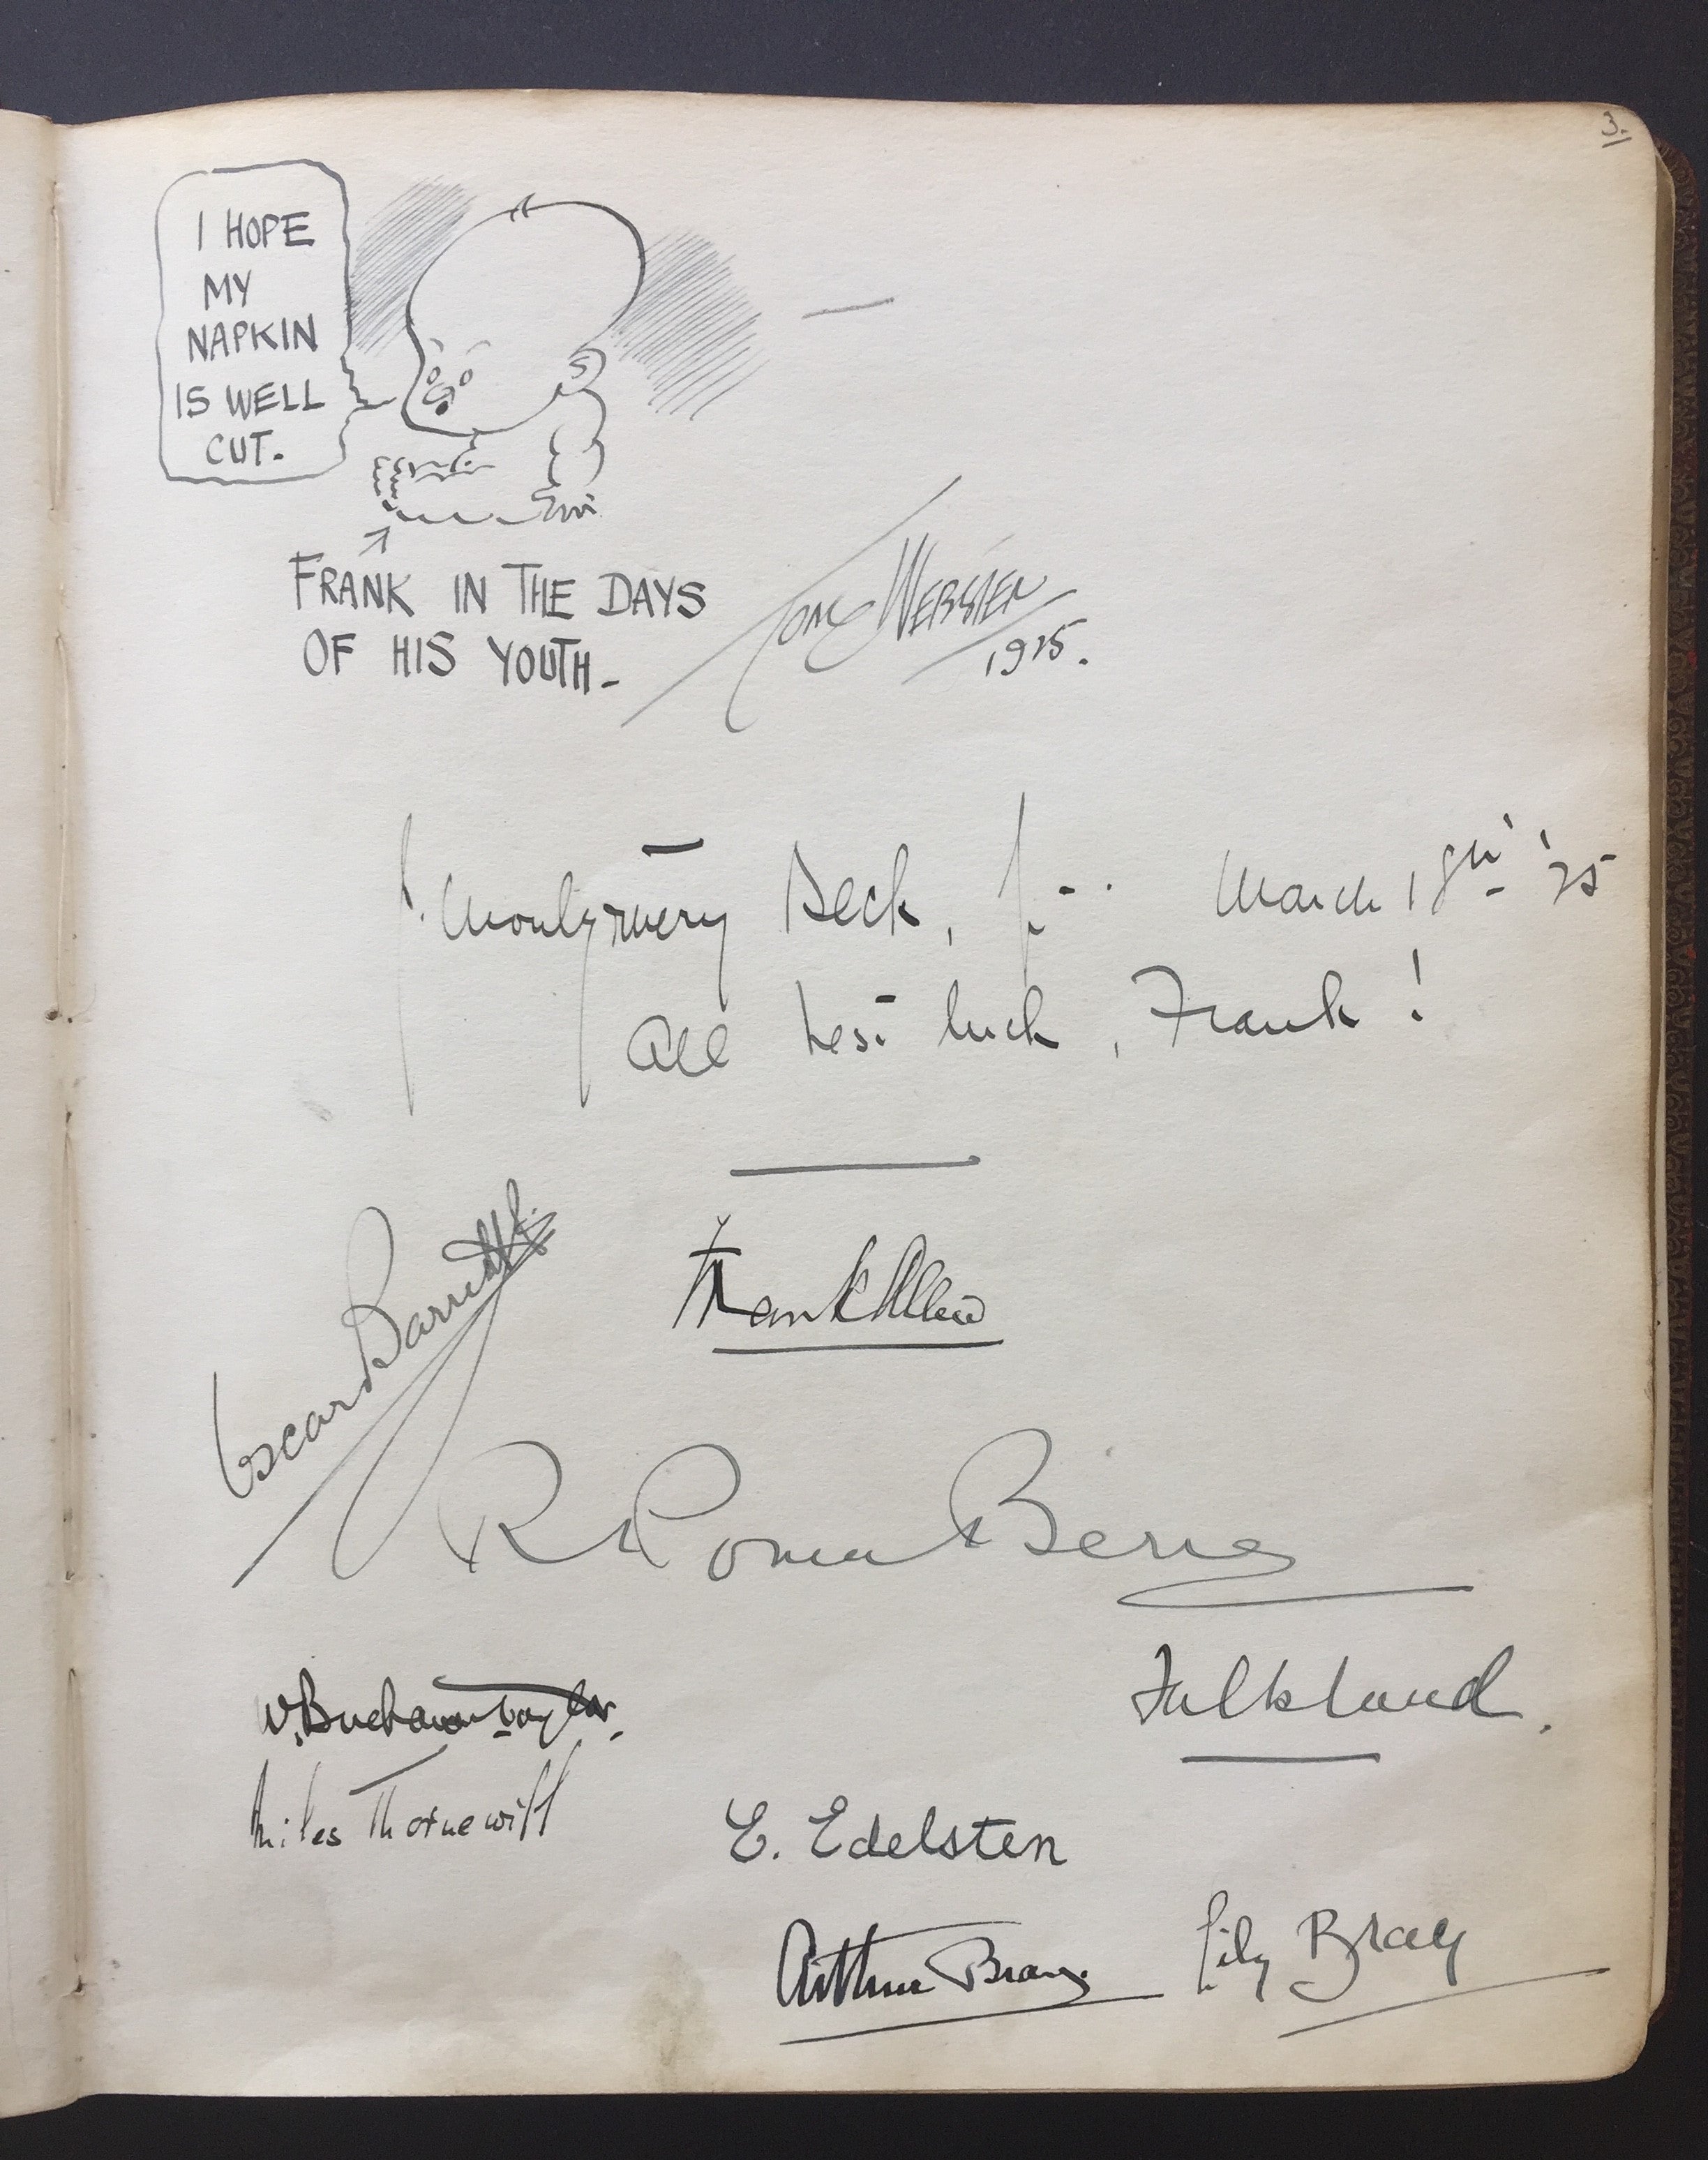 3.
I HOPE
MY
NAPKIN
IS WELL
CUT.
FRANK IN THE DAYS
OF HIS YOUTH.
Tom Webster
1925.
J. Montgomery Beck, Jr. March 18th '25
All best luck, Frank!
Oscar Barrett Jr.
Frank Allen
R Poma Berg
W. Buchanan-Taylor.
Falkland.
Miles Thornewill
E. Edelsten
Arthur Bray.
Lily Bray